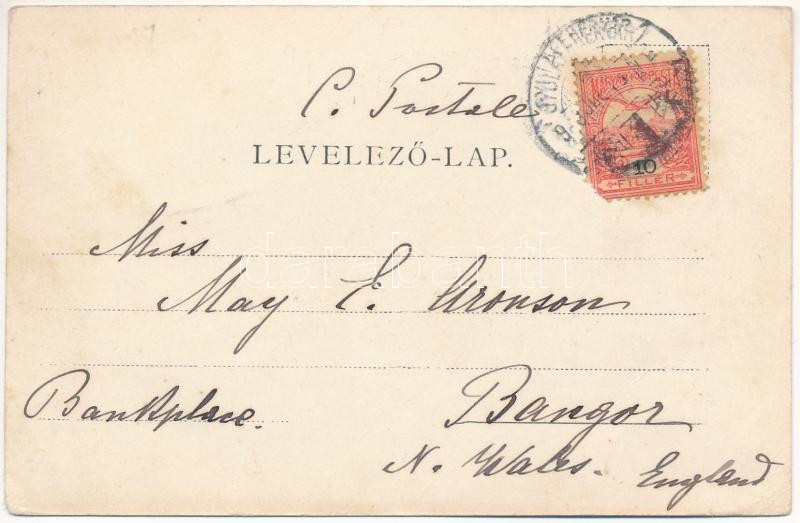 GYULAFEHÉRVÁR
MAGYAR KIR. POSTA
C. Postale
LEVELEZŐ-LAP.
10
FILLÉR
Miss
darabanth
May E. Aronson
Bankplace.
Bangor
N. Wales. England